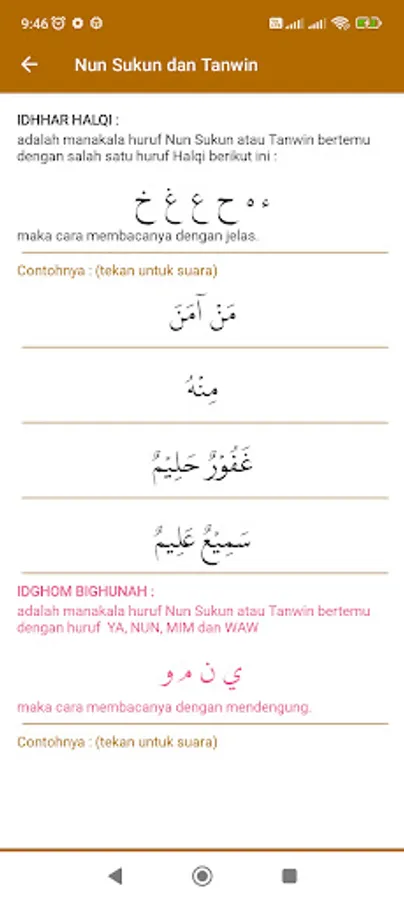 9:46
Nun Sukun dan Tanwin
IDHHAR HALQI :
adalah manakala huruf Nun Sukun atau Tanwin bertemu
dengan salah satu huruf Halqi berikut ini :
ء ه ح ع غ خ
maka cara membacanya dengan jelas.
Contohnya : (tekan untuk suara)
مَنْ آمَنَ
مِنْهُ
غَفُوْرٌ حَلِيْمٌ
سَمِيْعٌ عَلِيمٌ
IDGHOM BIGHUNAH :
adalah manakala huruf Nun Sukun atau Tanwin bertemu
dengan huruf YA, NUN, MIM dan WAW
ي ن م و
maka cara membacanya dengan mendengung.
Contohnya : (tekan untuk suara)